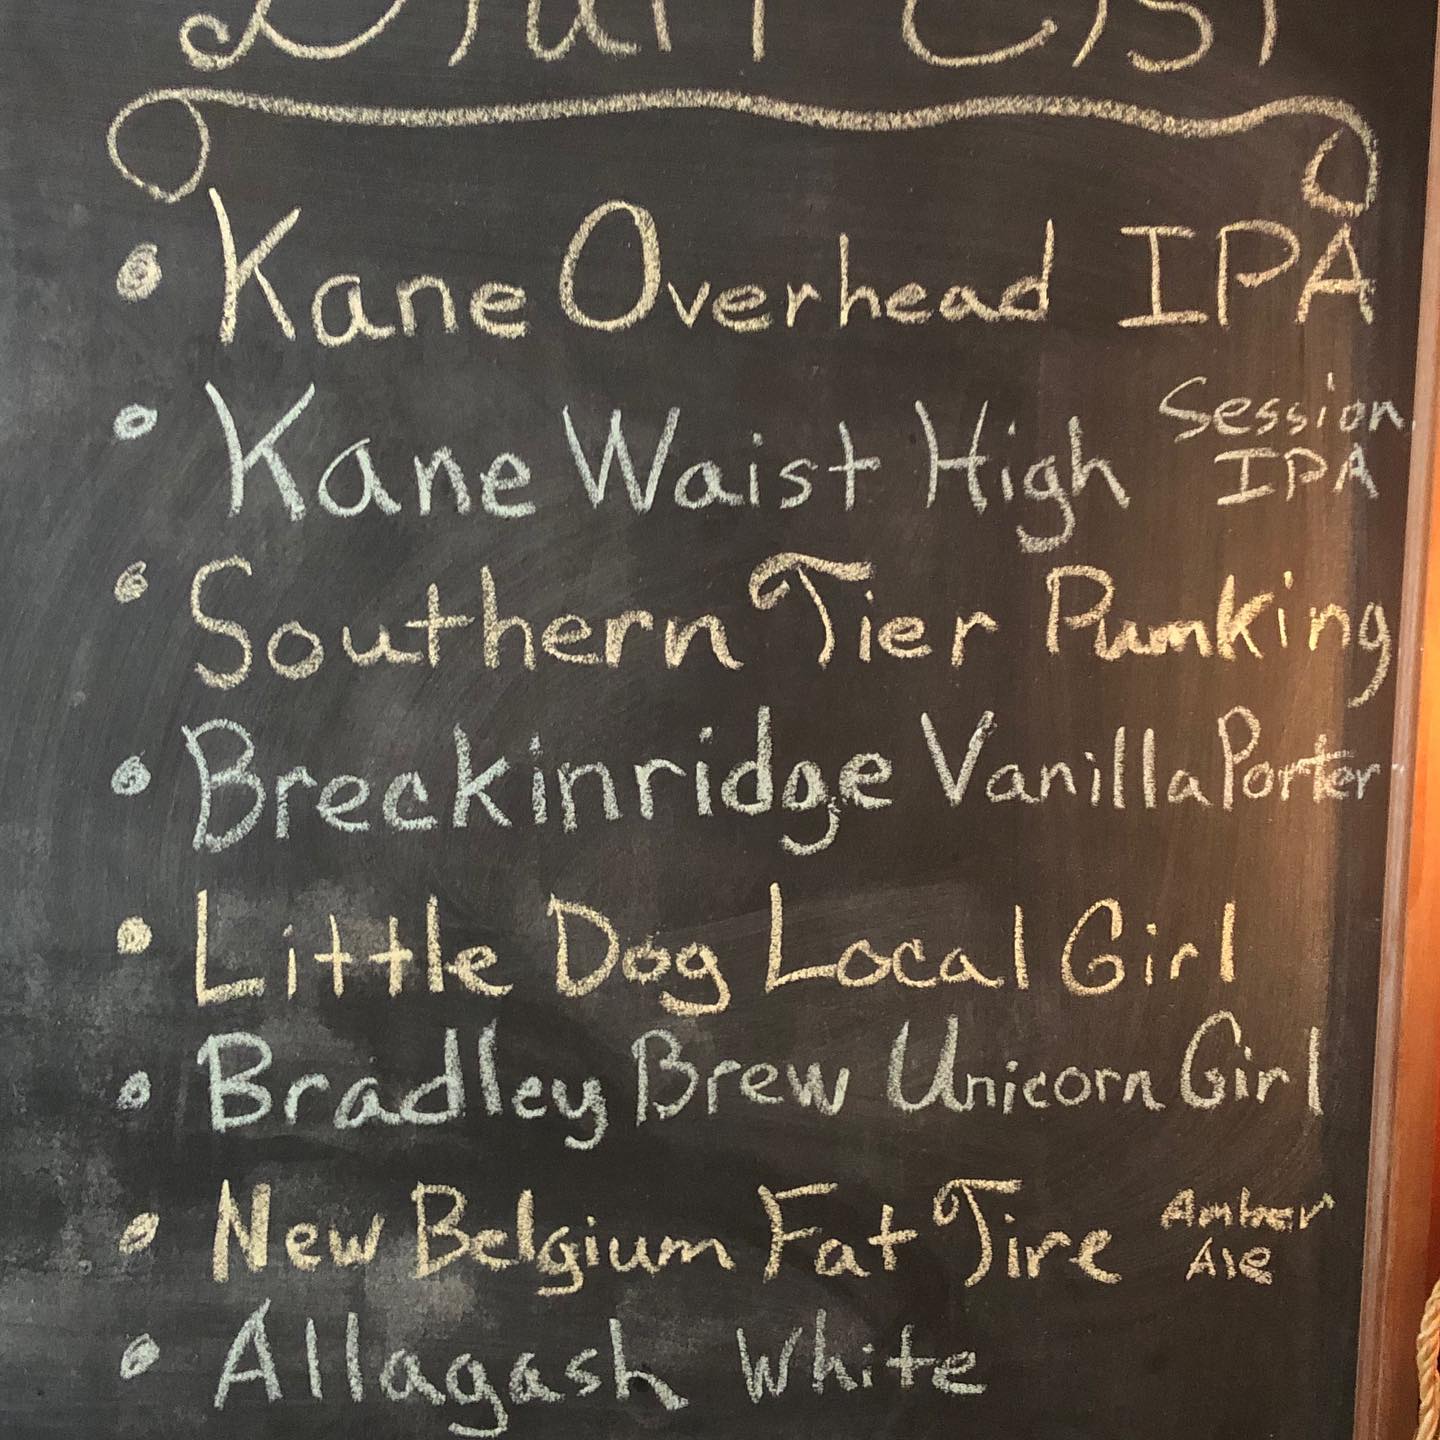 Draft List
• Kane Overhead IPA
• Kane Waist High Session IPA
• Southern Tier Pumking
• Breckinridge Vanilla Porter
• Little Dog Local Girl
• Bradley Brew Unicorn Girl
• New Belgium Fat Tire Amber Ale
• Allagash White